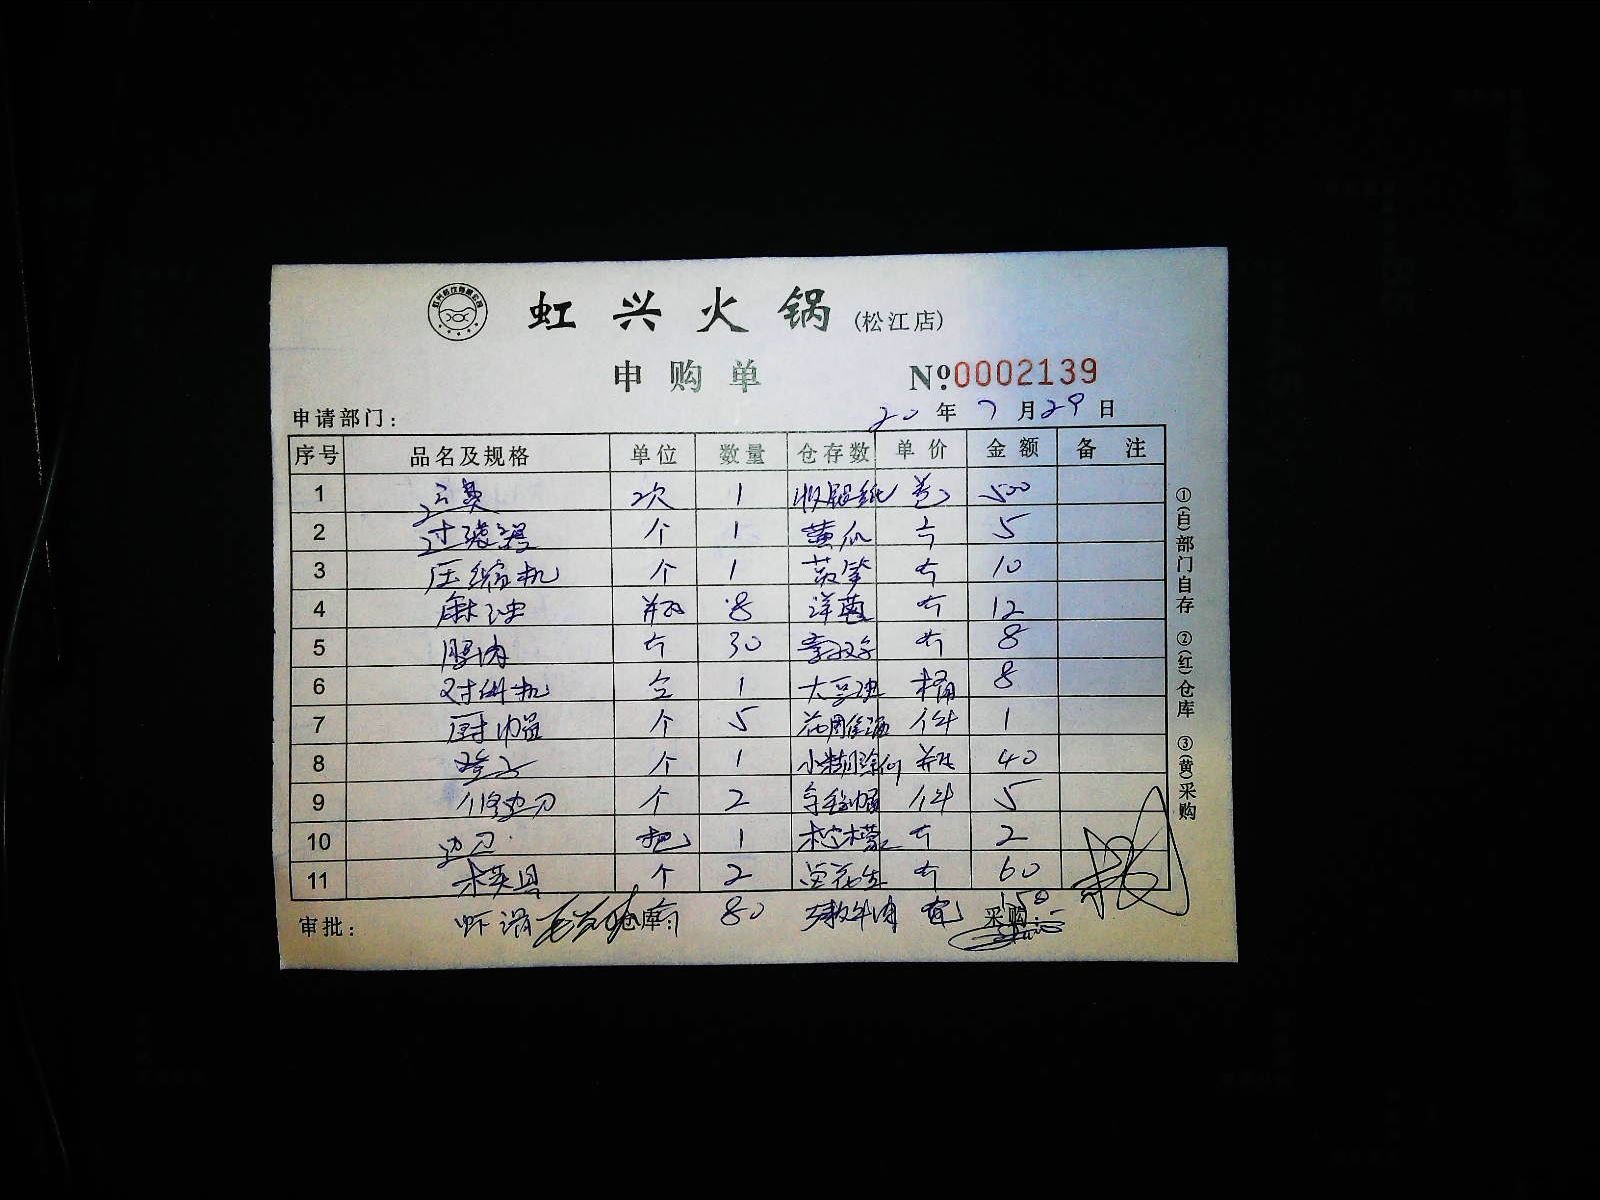 虹兴火锅(松江店)
申购单 №0002139
申请部门: 20年7月29日
序号 品名及规格 单位 数量 仓存数 单价 金额 备注
1 运粪 次 1 收银纸 卷 500
2 过滤器 个 1 黄瓜 斤 5
3 压缩机 个 1 斤 10
4 麻油 瓶 8 洋葱 斤 12
5 腿肉 斤 30 斤 8
6 对讲机 台 1 大豆油 桶 8
7 厨帽 个 5 件 1
8 个 1 瓶 40
9 修边刀 个 2 件 5
10 边刀 把 1 柠檬 斤 2
11 模具 个 2 花生 斤 60
审批: 虾滑 仓库: 80 牛肉 包 采购: 150
①(白)部门自存 ②(红)仓库 ③(黄)采购